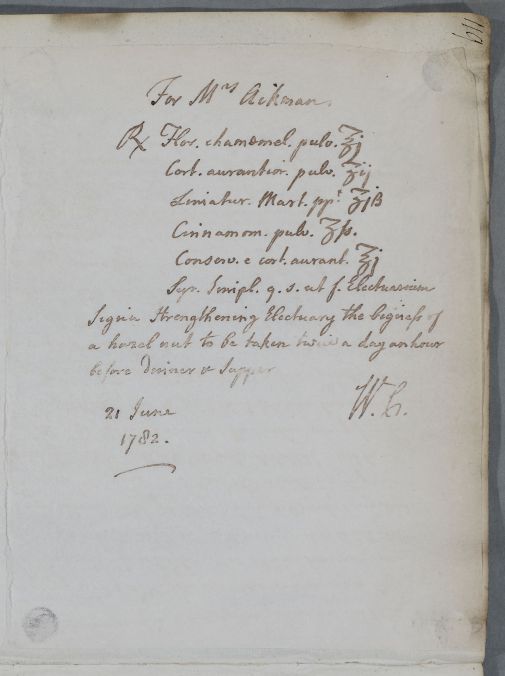 119
For Mrs Aikman.
℞ Flor. chamomel. pulv. ℥j
Cort. aurantior. pulv. ʒij
Limatur. Mart. ppt ʒjß
Cinnamom. pulv. ʒß.
Conserv. e cort. aurant. ℥j
Syr. Simpl. q. s. ut f. Electuarium
Signa Strengthening Electuary the bigness of
a hazel nut to be taken twice a day an hour
before Dinner & Supper
W. C.
21 June
1782.